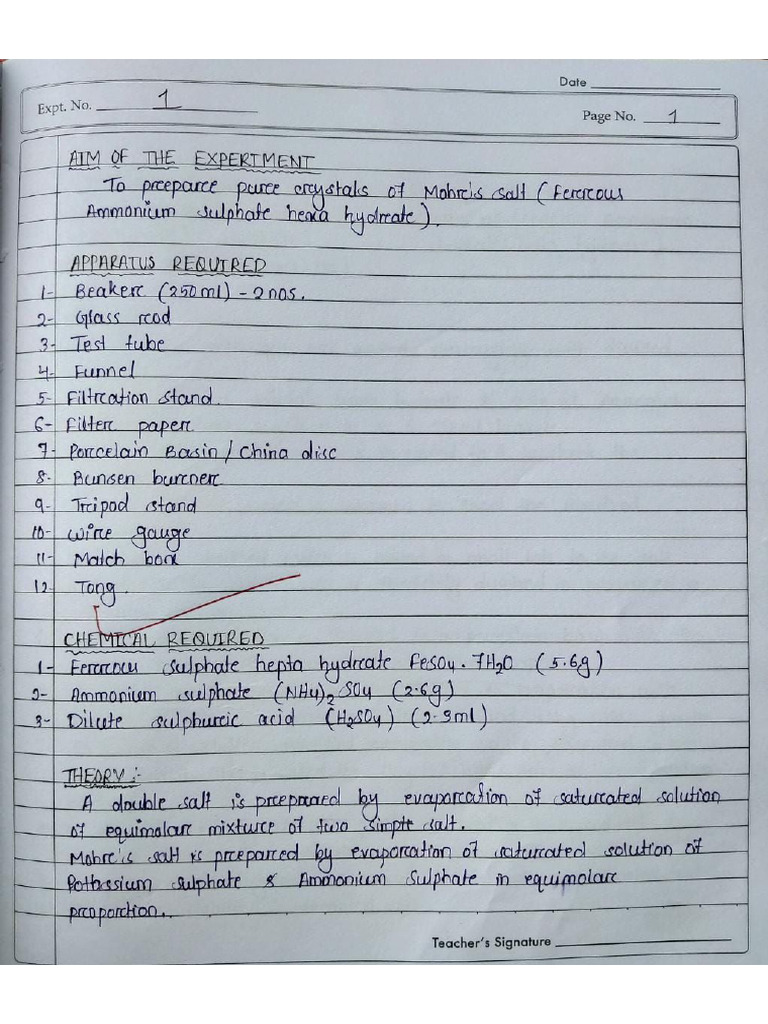 Date
Expt. No. 1
Page No. 1
AIM OF THE EXPERIMENT
To prepare pure crystals of Mohr's salt (Ferrous
Ammonium sulphate hexa hydrate).
APPARATUS REQUIRED
1- Beaker (250ml) - 2nos.
2- Glass rod
3- Test tube
4- Funnel
5- Filtration stand
6- Filter paper
7- Porcelain Basin / China disc
8- Bunsen burner
9- Tripod stand
10- Wire gauge
11- Match box
12- Tong.
CHEMICAL REQUIRED
1- Ferrous sulphate hepta hydrate FeSO4. 7H2O (5.6g)
2- Ammonium sulphate (NH4)2 SO4 (2.6g)
3- Dilute sulphuric acid (H2SO4) (2-3ml)
THEORY :-
A double salt is prepared by evaporation of saturated solution
of equimolar mixture of two simple salt.
Mohr's salt is prepared by evaporation of saturated solution of
Potassium sulphate & Ammonium Sulphate in equimolar
proportion.
Teacher's Signature